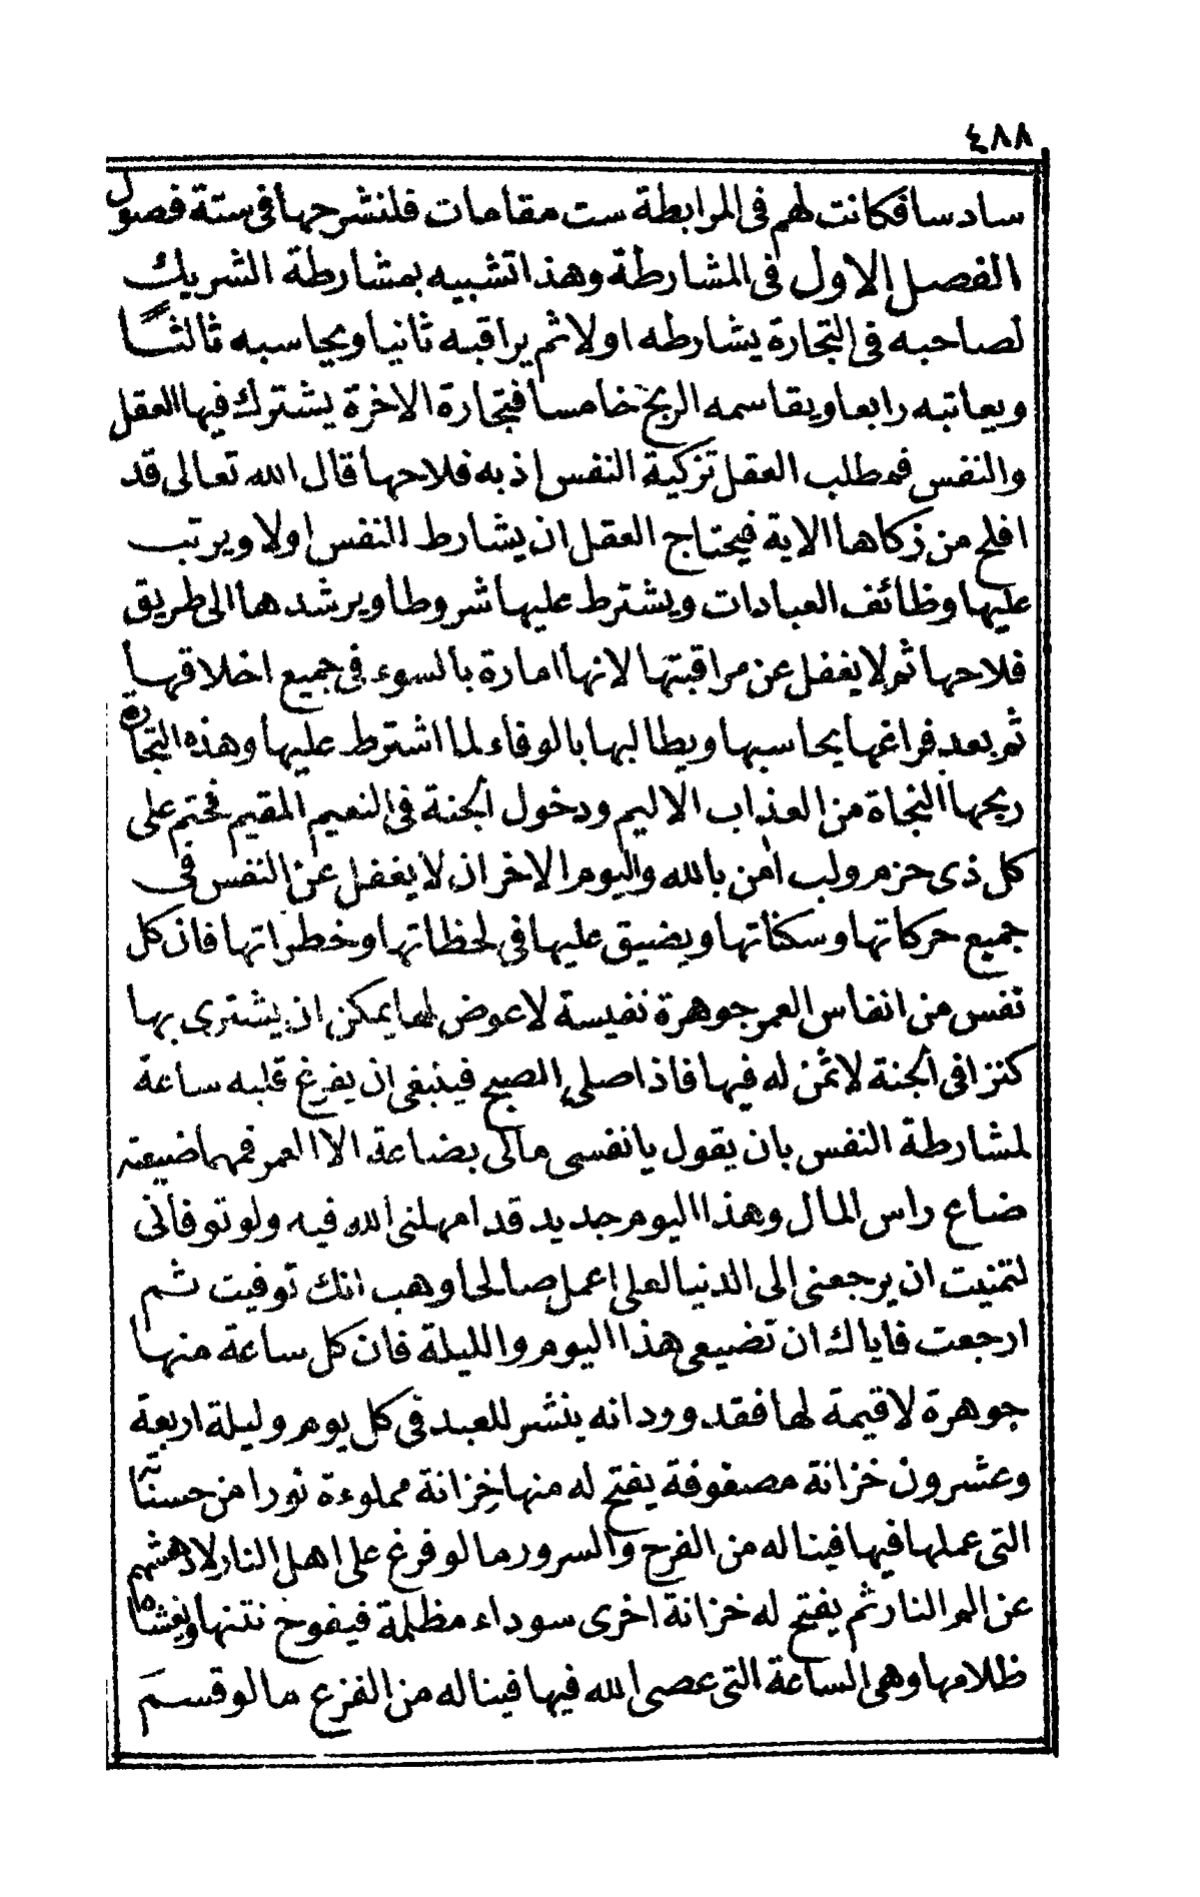 ٤٨٨
سادسا فكانت لهم فى المرابطة ست مقامات فلنشرحها فى ستة فصول
الفصل الاول فى المشارطة وهذا تشبيه بمشارطة الشريك
لصاحبه فى التجارة يشارطه اولا ثم يراقبه ثانيا ويحاسبه ثالثا
ويعاتبه رابعا ويقاسمه الربح خامسا فتجارة الاخرة يشترك فيها العقل
والنفس فمطلب العقل تزكية النفس اذ به فلاحها قال الله تعالى قد
افلح من زكاها الاية فيحتاج العقل ان يشارط النفس اولا ويرتب
عليها وظائف العبادات ويشترط عليها شروطا ويرشدها الى طريق
فلاحها ثم لا يغفل عن مراقبتها لانها امارة بالسوء فى جميع اخلاقها
ثم بعد فراغها يحاسبها ويطالبها بالوفاء لما اشترط عليها وهذه التجارة
ربحها النجاة من العذاب الاليم ودخول الجنة فى النعيم المقيم فحتم على
كل ذى حزم ولب امن بالله واليوم الاخر ان لا يغفل عن النفس فى
جميع حركاتها وسكناتها ويضيق عليها فى لحظاتها وخطراتها فان كل
نفس من انفاس العمر جوهرة نفيسة لا عوض لها يمكن ان يشترى بها
كنزا فى الجنة لا ثمن له فيها فاذا صلى الصبح فينبغى ان يفرغ قلبه ساعة
لمشارطة النفس بان يقول يا نفسى مالى بضاعة الا العمر فمهما ضيعته
ضاع راس المال وهذا اليوم جديد قد امهلنى الله فيه ولو توفانى
لتمنيت ان يرجعنى الى الدنيا لعلى اعمل صالحا وهب انك توفيت ثم
ارجعت فاياك ان تضيعى هذا اليوم والليلة فان كل ساعة منها
جوهرة لا قيمة لها فقد ورد انه ينشر للعبد فى كل يوم وليلة اربعة
وعشرون خزانة مصفوفة يفتح له منها خزانة مملوءة نورا من حسناته
التى عملها فيها فيناله من الفرح والسرور ما لو فرغ على اهل النار لادهشهم
عن الم النار ثم يفتح له خزانة اخرى سوداء مظلمة فيفوح نتنها ويغشاه
ظلامها وهى الساعة التى عصى الله فيها فيناله من الفزع ما لو قسم